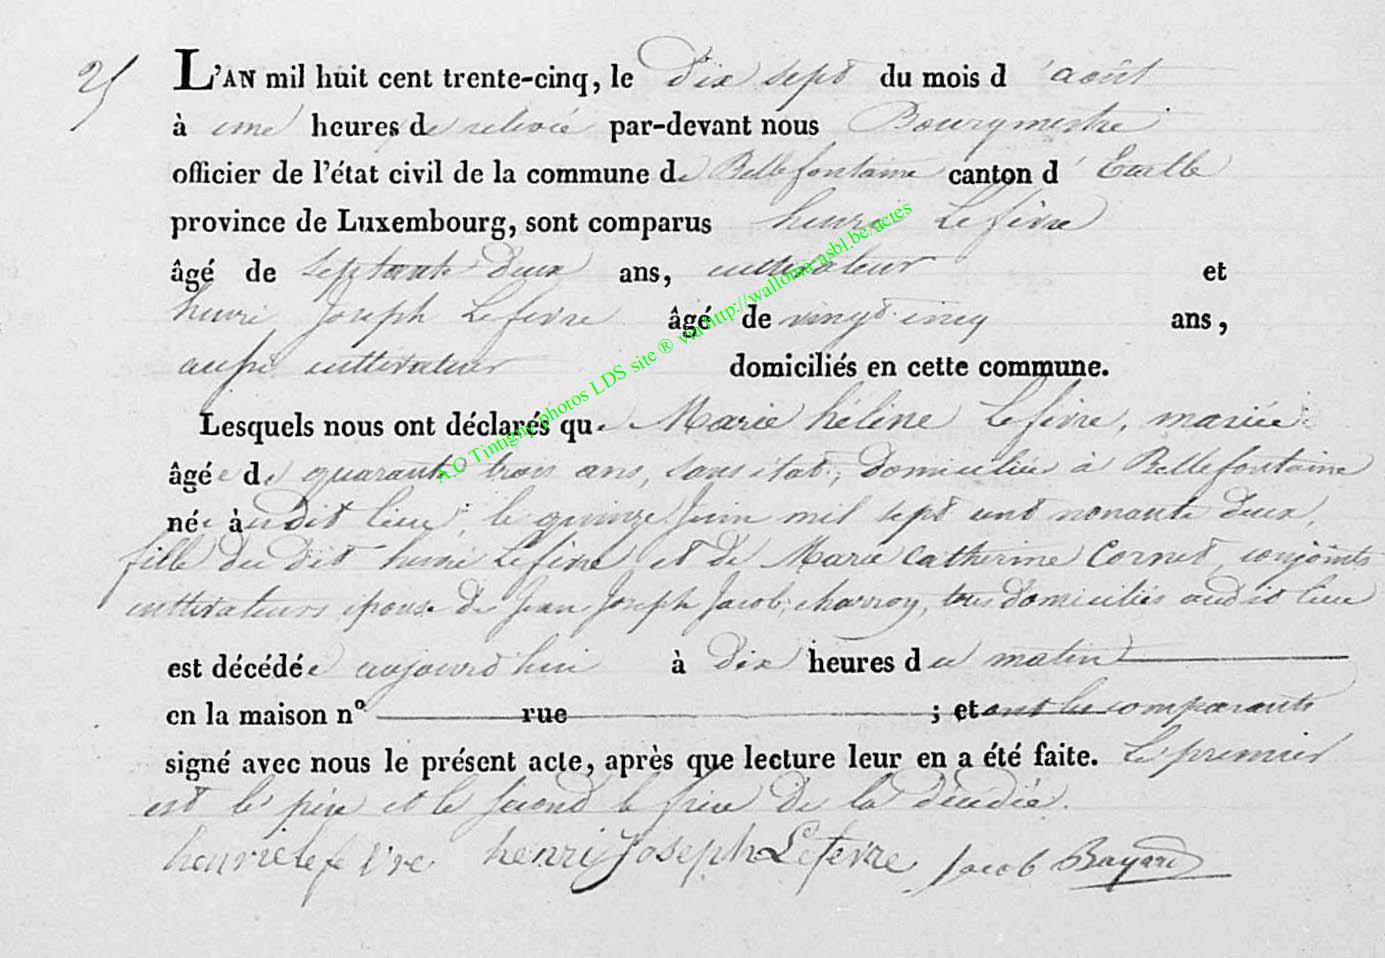 25
L'AN mil huit cent trente-cinq, le dix sept du mois d'août
à une heures de relevée par-devant nous Bourgmestre
officier de l'état civil de la commune de Bellefontaine canton d'Etalle
province de Luxembourg, sont comparus henri Lefèvre
âgé de septante deux ans, cultivateur et
henri Joseph Lefevre âgé de vingt cinq ans,
aussi cultivateur domiciliés en cette commune.
Lesquels nous ont déclarés que Marie héline Lefèvre, mariée
âgée de quarante trois ans, sans état, domiciliée à Bellefontaine
née audit lieu, le quinze Juin mil sept cent nonante deux,
fille du dit henri Lefèvre et de Marie Catherine Cornet, conjoints
cultivateurs épouse de Jean Joseph Jacob, charron, tous domiciliés audit lieu
est décédée aujourd'hui à dix heures du matin
en la maison n° rue ; et ont les comparants
signé avec nous le présent acte, après que lecture leur en a été faite. Le premier
est le père et le second le frère de la décédée.
henri lefevre henri Joseph Lefevre Jacob Bayard
A.C Tintigny photos LDS site ® via http://wallonia-asbl.be/actes